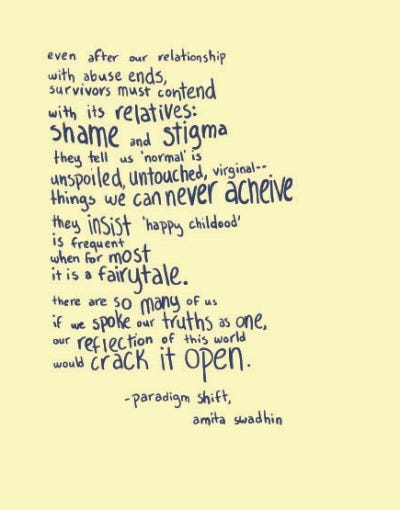 even after our relationship
with abuse ends,
survivors must contend
with its relatives:
shame and stigma
they tell us 'normal' is
unspoiled, untouched, virginal--
things we can never acheive
they insist 'happy childood'
is frequent
when for most
it is a fairytale.
there are so many of us
if we spoke our truths as one,
our reflection of this world
would crack it open.
-paradigm shift,
amita swadhin